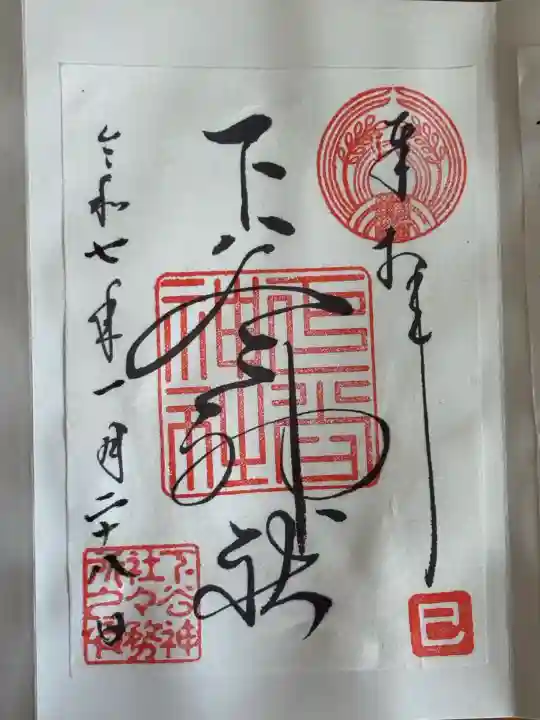 奉拝
下谷神社
令和七年一月二十八日
下谷神社
下谷神
社々務
所之印
巳